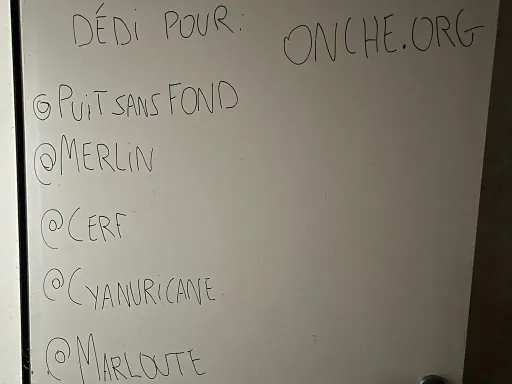 DÉDi POUR: ONCHE.ORG
@PUiTSANSFOND
@MERLiN
@CERF
@CYANURiCANE
@MARLOUTE